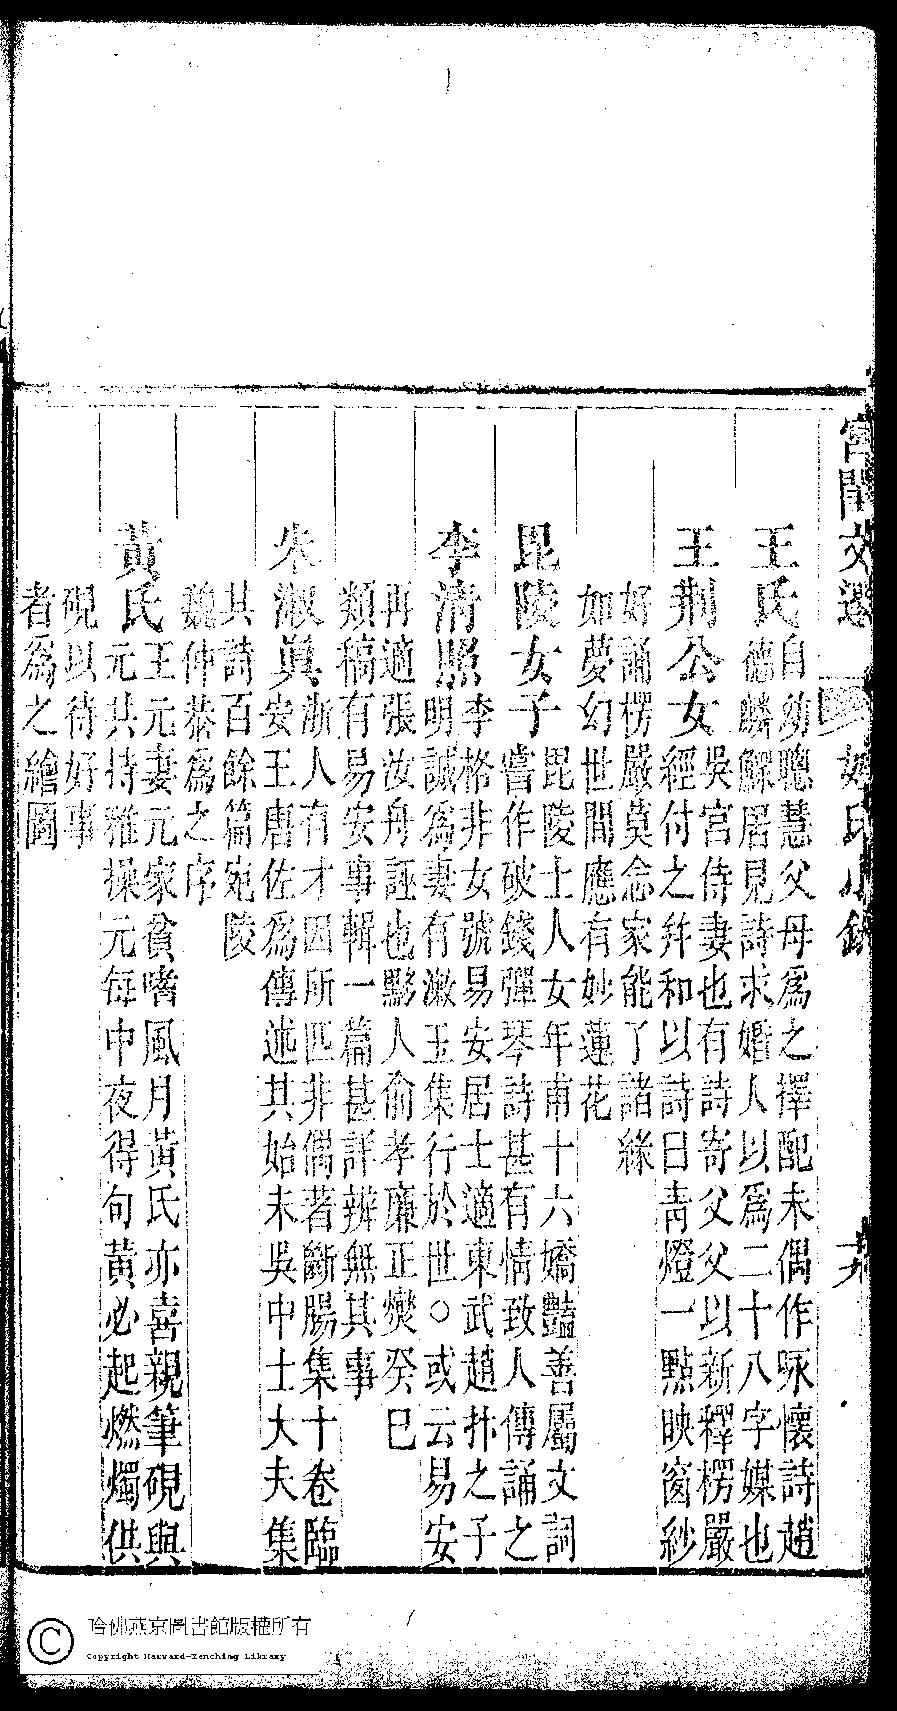 宮閨文選 姓氏小錄
王氏 自幼聰慧父母爲之擇配未偶作咏懷詩趙
德麟鰥居見詩求婚人以爲二十八字媒也
王荆公女 吳官侍妻也有詩寄父父以新釋楞嚴
經付之并和以詩曰青燈一點映窗紗
好誦楞嚴莫念家能了諸緣
如夢幻世間應有妙蓮花
毘陵女子 毘陵士人女年甫十六嬌豔善屬文詞
嘗作破錢彈琴詩甚有情致人傳誦之
李清照 李格非女號易安居士適東武趙抃之子
明誠爲妻有漱玉集行於世○或云易安
再適張汝舟誣也黟人俞孝廉正燮癸巳
類稿有易安事輯一篇甚詳辨無其事
朱淑眞 浙人有才因所匹非偶著斷腸集十卷臨
安王唐佐爲傳述其始末吳中士大夫集
其詩百餘篇宛陵
魏仲恭爲之序
黃氏 王元妻元家貧嗜風月黃氏亦喜親筆硯與
元共持雅操元每中夜得句黃必起燃燭供
硯以待好事
者爲之繪圖
哈佛燕京圖書館版權所有
Copyright Harvard-Yenching Library